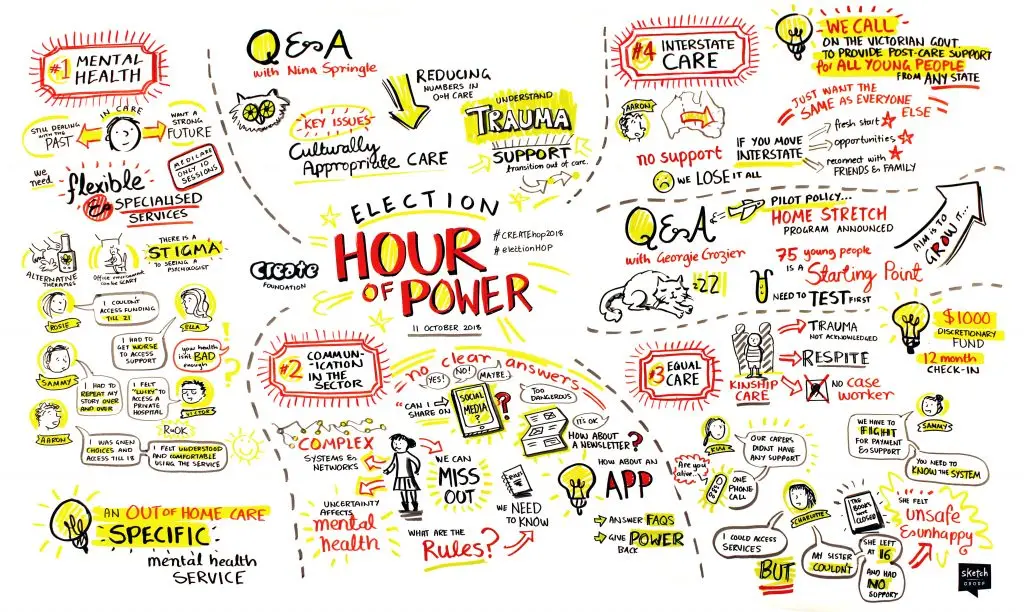 #1 MENTAL
HEALTH
IN CARE
STILL DEALING
WITH THE
PAST
WANT A
STRONG
FUTURE
We
need
flexible
&
SPECIALISED
SERVICES
MEDICARE
ONLY 10
SESSIONS
ALTERNATIVE
THERAPIES
Office environment
can be SCARY
THERE IS A
STIGMA
TO SEEING A
PSYCHOLOGIST
I COULDN'T
ACCESS FUNDING
TILL 21
ROSIE
ELLA
I HAD TO
GET WORSE
TO ACCESS
SUPPORT
your health
isn't BAD
enough
?
SAMMY
I HAD TO
REPEAT MY
STORY OVER
AND OVER
I FELT
"LUCKY" TO
ACCESS A
PRIVATE
HOSPITAL
VICTOR
RUOK
AARON
I WAS GIVEN
CHOICES AND
ACCESS TILL 18
I FELT UNDERSTOOD
AND COMFORTABLE
USING THE SERVICE
AN OUT OF HOME CARE
SPECIFIC
mental health
SERVICE
Q&A
with Nina Springle
REDUCING
NUMBERS IN
OOH CARE
KEY ISSUES
Culturally
Appropriate CARE
UNDERSTAND
TRAUMA
SUPPORT
transition out of care.
ELECTION
HOUR
OF POWER
#CREATEhop2018
#electionHOP
create
FOUNDATION
11 OCTOBER 2018
#2 COMMUN-
-ICATION
IN THE
SECTOR
no clear answers
YES!
NO!
MAYBE.
"CAN I
SHARE ON
SOCIAL
MEDIA?
?
TOO
DANGEROUS
ITS OK
HOW ABOUT
A NEWSLETTER?
COMPLEX
SYSTEMS &
NETWORKS
UNCERTAINTY
AFFECTS
mental
health
WE CAN
MISS
OUT
WHAT ARE THE
Rules?
WE NEED
TO KNOW
HOW ABOUT AN
APP
ANSWER FAQS
GIVE POWER
BACK
#4 INTERSTATE
CARE
WE CALL
ON THE VICTORIAN GOVT
TO PROVIDE POST-CARE SUPPORT
for ALL YOUNG PEOPLE
FROM ANY STATE
AARON
JUST WANT THE
SAME AS EVERYONE
ELSE
no support
IF YOU MOVE
INTERSTATE
fresh start
opportunities
reconnect with
FRIENDS & FAMILY
WE LOSE IT ALL
Q&A
with Georgie Crozier
PILOT POLICY...
HOME STRETCH
PROGRAM ANNOUNCED
75 young people
IS A
Starting Point
NEED TO TEST FIRST
AIM IS TO
GROW IT...
#3 EQUAL
CARE
KINSHIP
CARE
TRAUMA
NOT ACKNOWLEDGED
RESPITE
NO case
worker
$1000
DISCRETIONARY
FUND
12 month
CHECK-IN
OUR CARERS
DIDNT HAVE
ANY SUPPORT
Are you
alive..
ONE
PHONE
CALL
SAMMY
WE HAVE TO
FIGHT
FOR PAYMENT
& SUPPORT
YOU NEED TO
KNOW THE SYSTEM
CHARLOTTE
I COULD ACCESS
SERVICES
BUT
MY SISTER
COULDN'T
THE
BOOKS
WERE
CLOSED
SHE LEFT
AT 16
AND HAD
NO
SUPPORT
SHE FELT
unsafe
& unhappy
sketch
GROUP